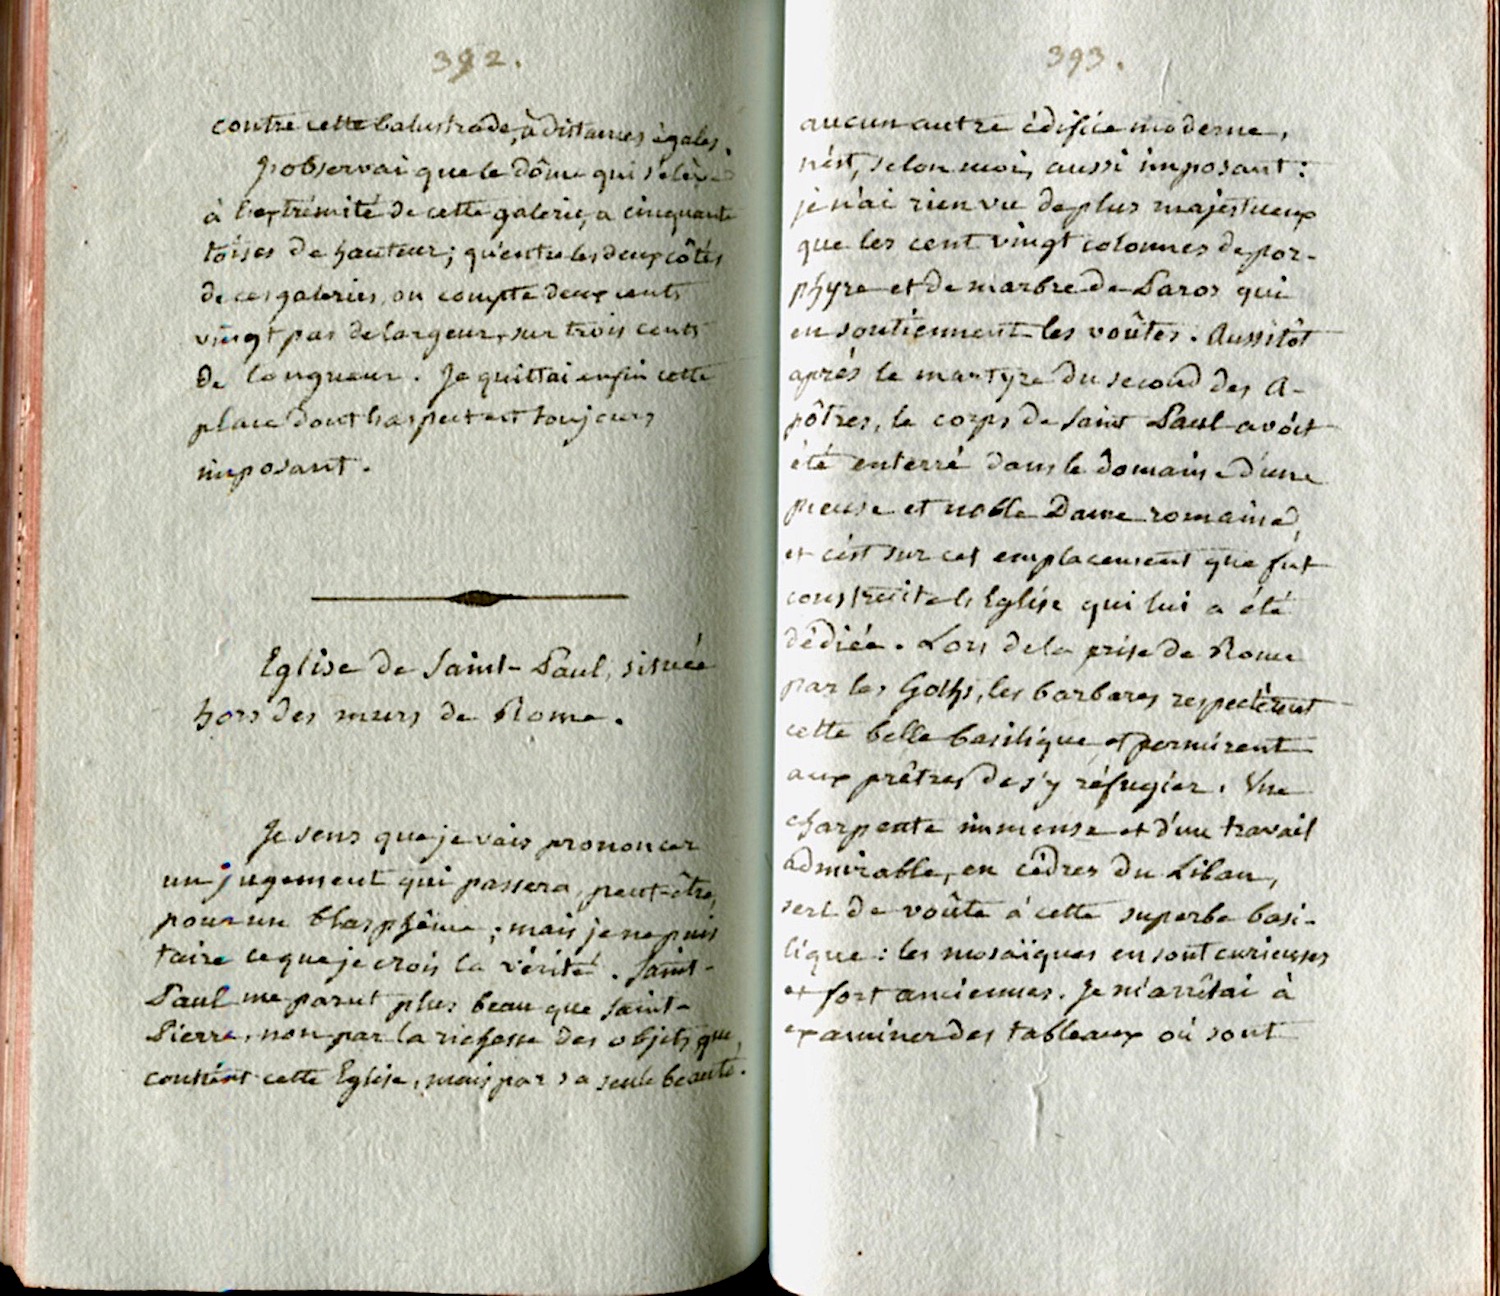 392.
contre cette balustrade, à distances égales.
J'observai que le dôme qui s'élève
à l'extrémité de cette galerie, a cinquante
toises de hauteur; qu'entre les deux côtés
de ces galeries, on compte deux cents
vingt pas de largeur, sur trois cents
de longueur. Je quittai enfin cette
place dont l'aspect est toujours
imposant.
Eglise de Saint-Paul, située
hors des murs de Rome.
Je sens que je vais prononcer
un jugement qui passera, peut-être,
pour un blasphême; mais je ne puis
taire ce que je crois la vérité. Saint-
Paul me parut plus beau que Saint-
Pierre, non par la richesse des objets que
contient cette Eglise, mais par sa seule beauté.
393.
aucun autre édifice moderne,
n'est, selon moi, aussi imposant:
je n'ai rien vu de plus majestueux
que les cent vingt colonnes de por-
phyre et de marbre de Paros qui
en soutiennent les voûtes. Aussitôt
après le martyre du second des A-
pôtres, le corps de Saint Paul avoit
été enterré dans le domaine d'une
pieuse et noble Dame romaine,
et c'est sur cet emplacement que fut
construite l'Eglise qui lui a été
dédiée. Lors de la prise de Rome
par les Goths, les barbares respectèrent
cette belle basilique, et permirent
aux prêtres de s'y réfugier. Une
charpente immense et d'un travail
admirable, en cèdres du Liban,
sert de voûte à cette superbe basi-
lique: les mosaïques en sont curieuses
et fort anciennes. Je m'arrêtai à
examiner des tableaux où sont